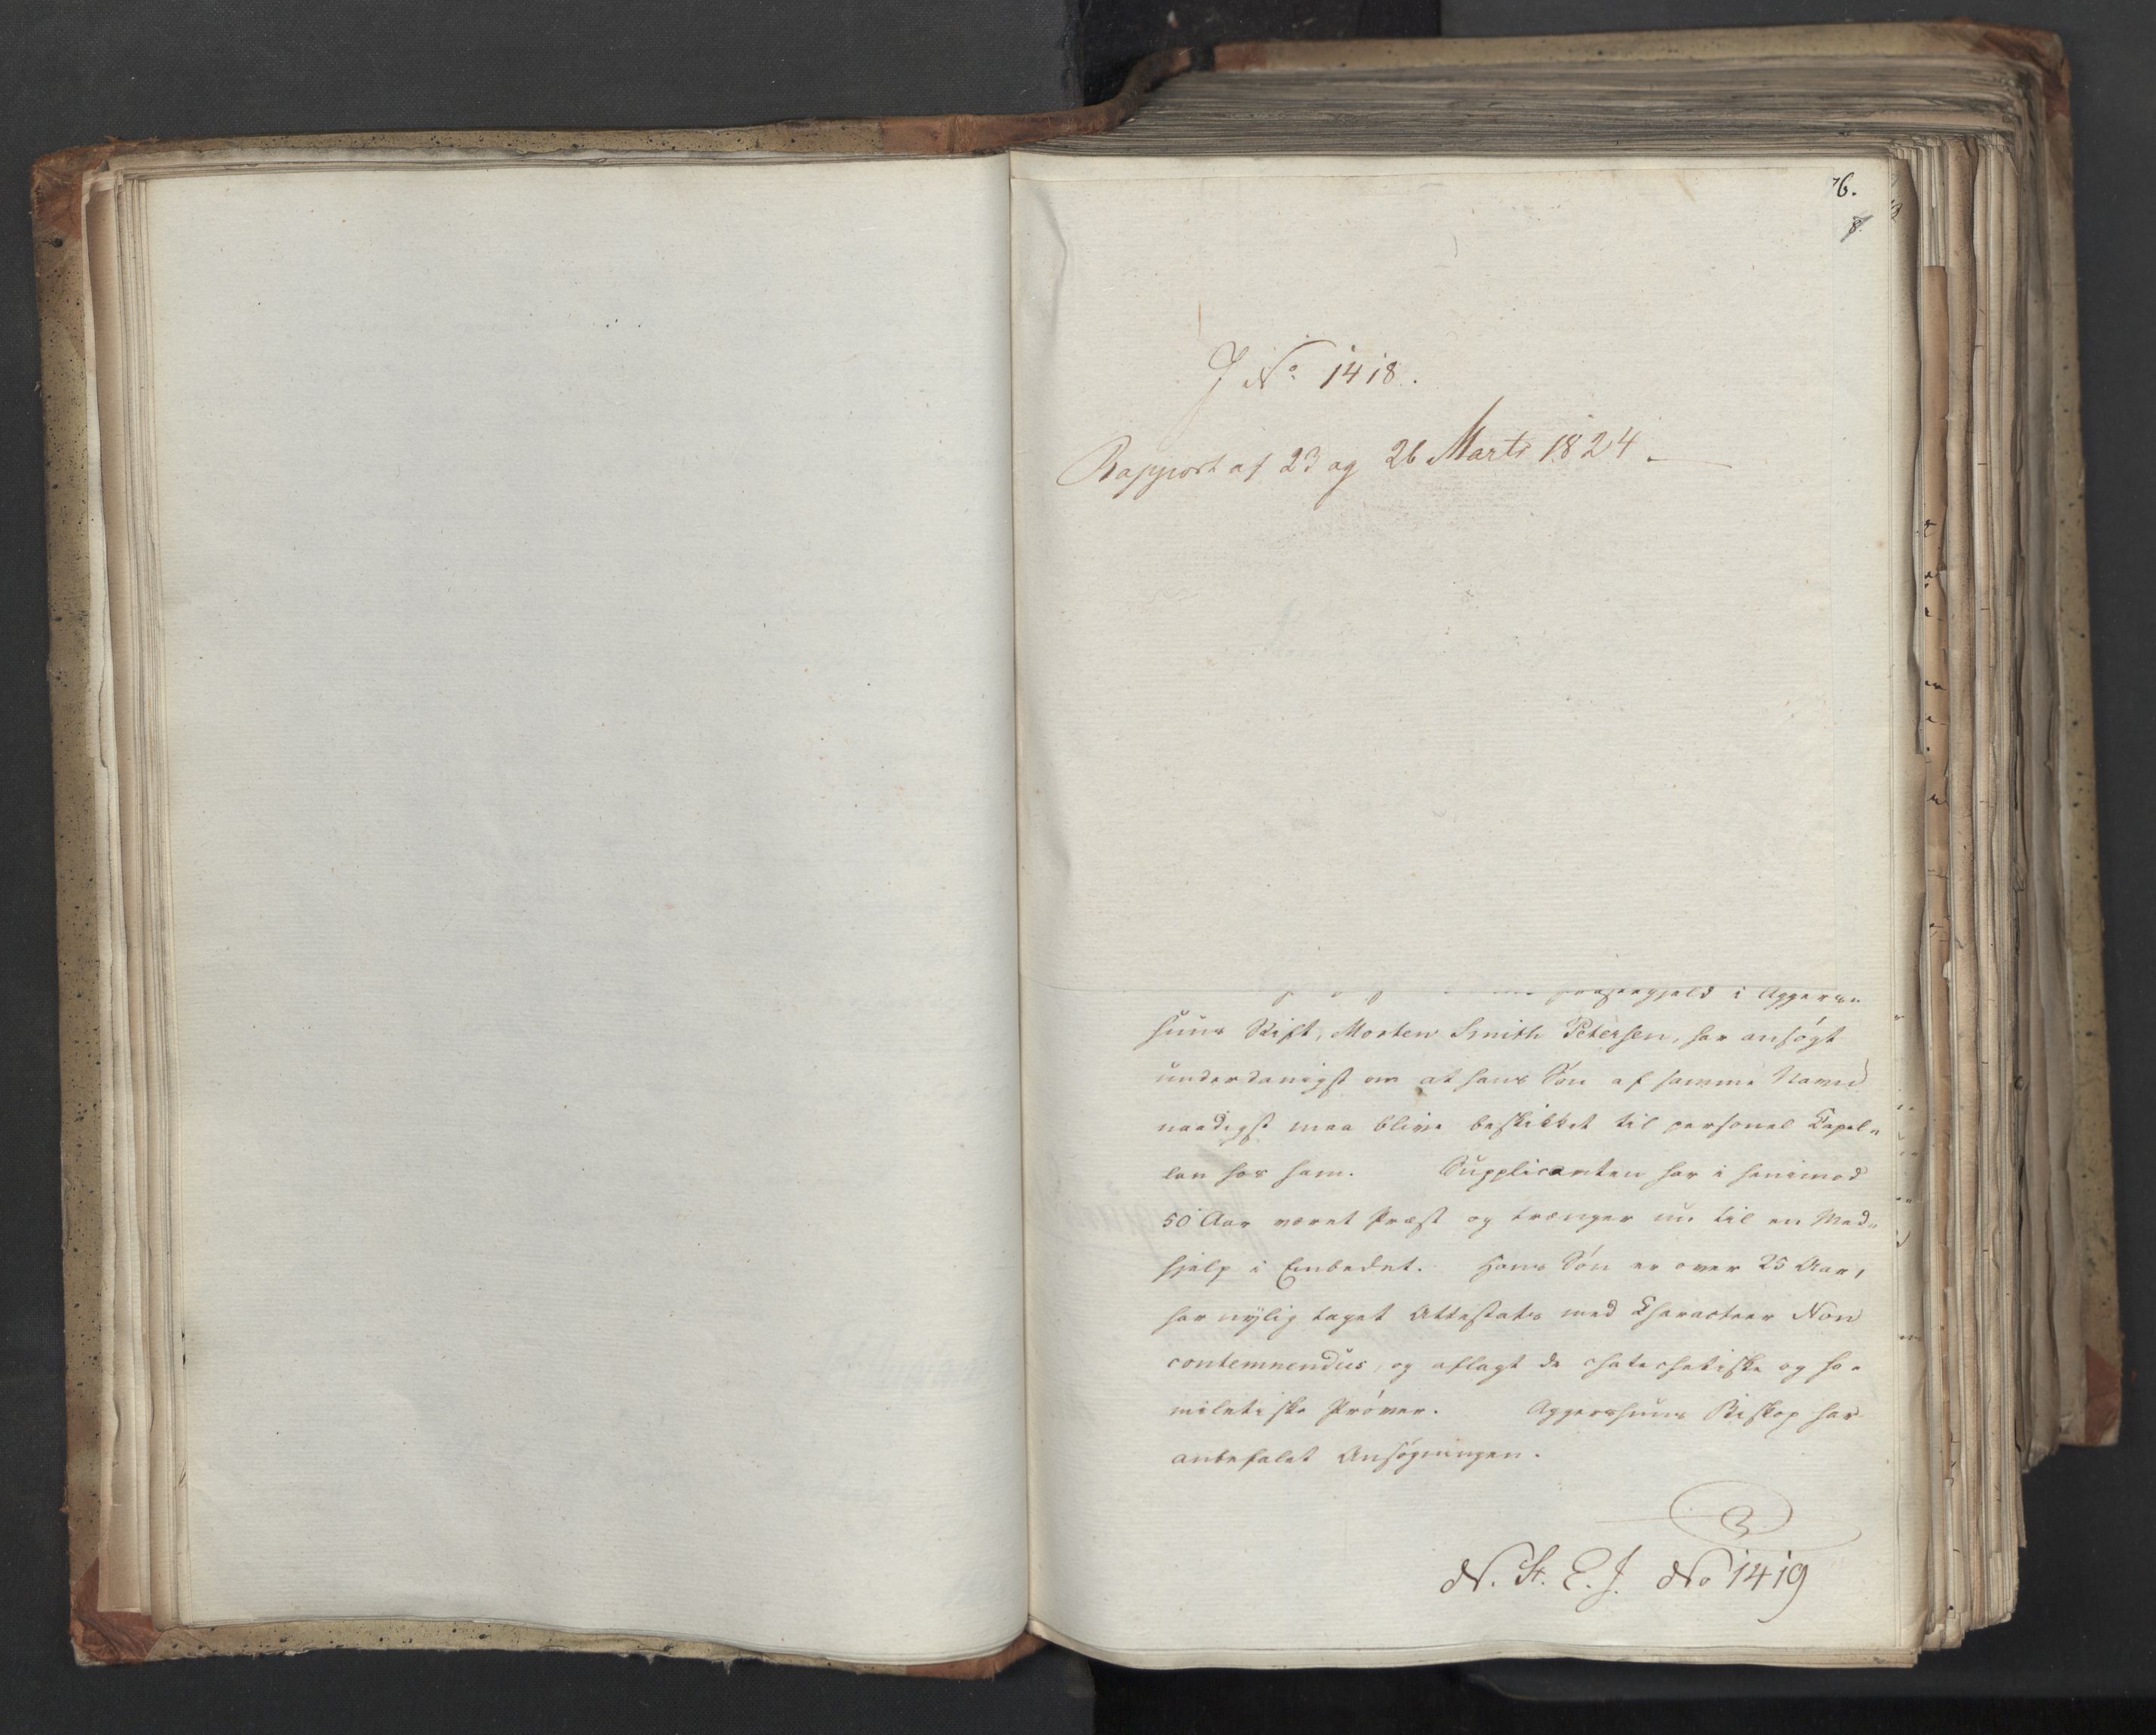 76.
8.
J No 1418.
Rapport af 23 og 26 Marts 1824.
Præstegjeld i Aggers-
huus Stift, Morten Smith Petersen, har ansøgt
underdanigst om at hans Søn af samme Navn
naadigst maa blive beskikket til personel Capel-
lan hos ham. Supplicanten har i henimod
50 Aar været Præst og trænger nu til en Med-
hjelp i Embedet. Hans Søn er over 25 Aar,
har nylig taget Attestats med Characteer Non
contemnendus, og aflagt de chatechetiske og ho-
miletiske Prøver. Aggershuus Biskop har
anbefalet Ansøgningen.
N. St. E. J. No 1419